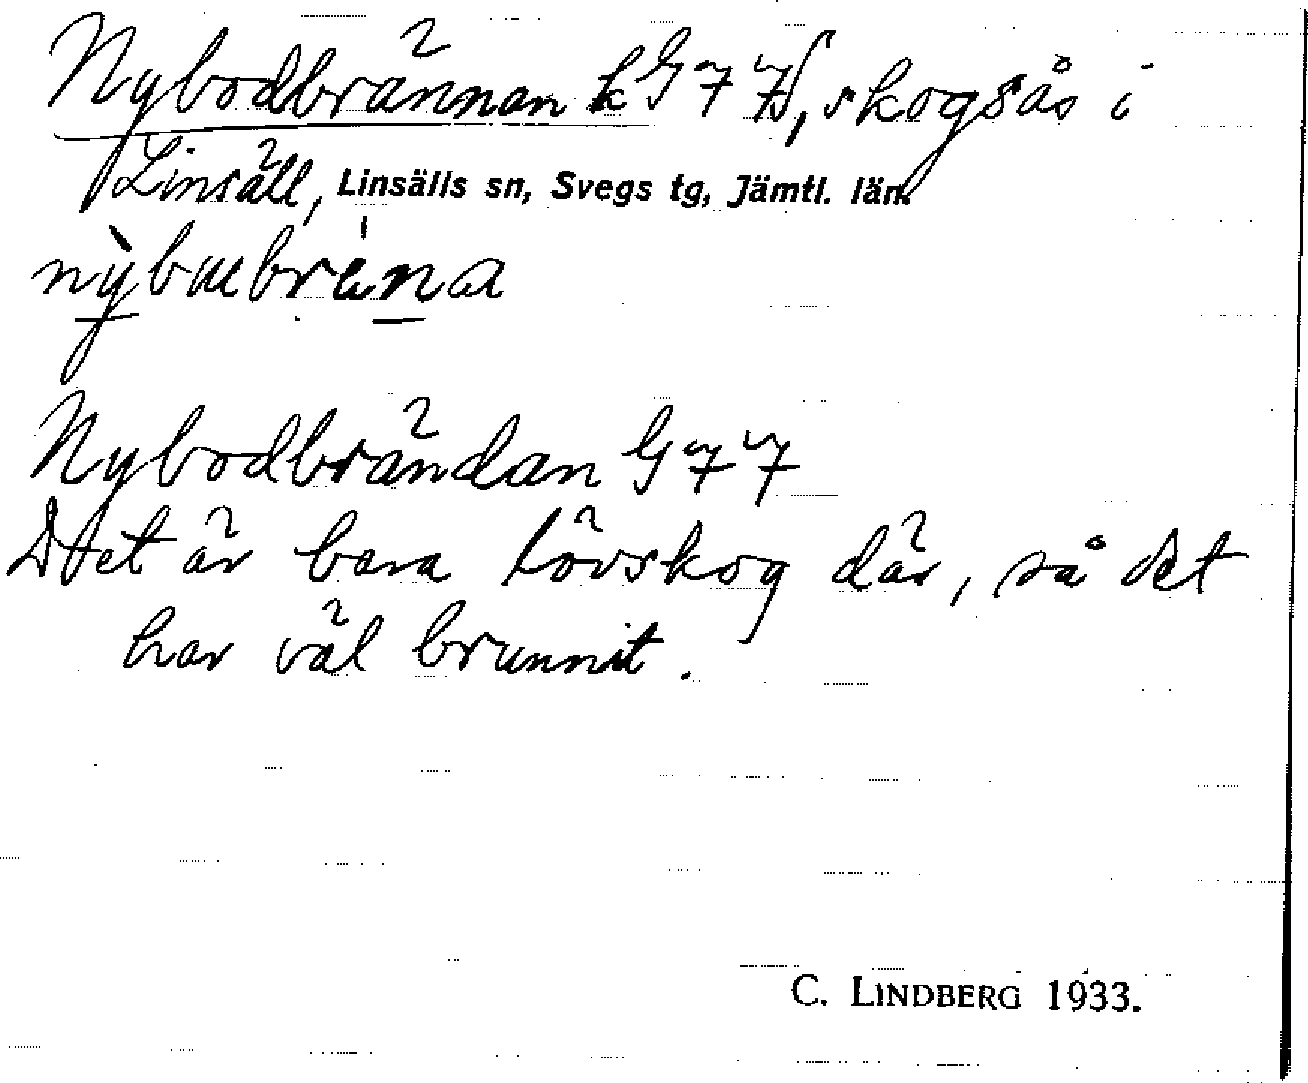 Nybodbrännan k G 7 7, skogsås i
Linsäll, Linsälls sn, Svegs tg, Jämtl. län.
Nybodbrändan G 7 7
Det är bara lövskog där, så det
har väl brunnit.
C. LINDBERG 1933.